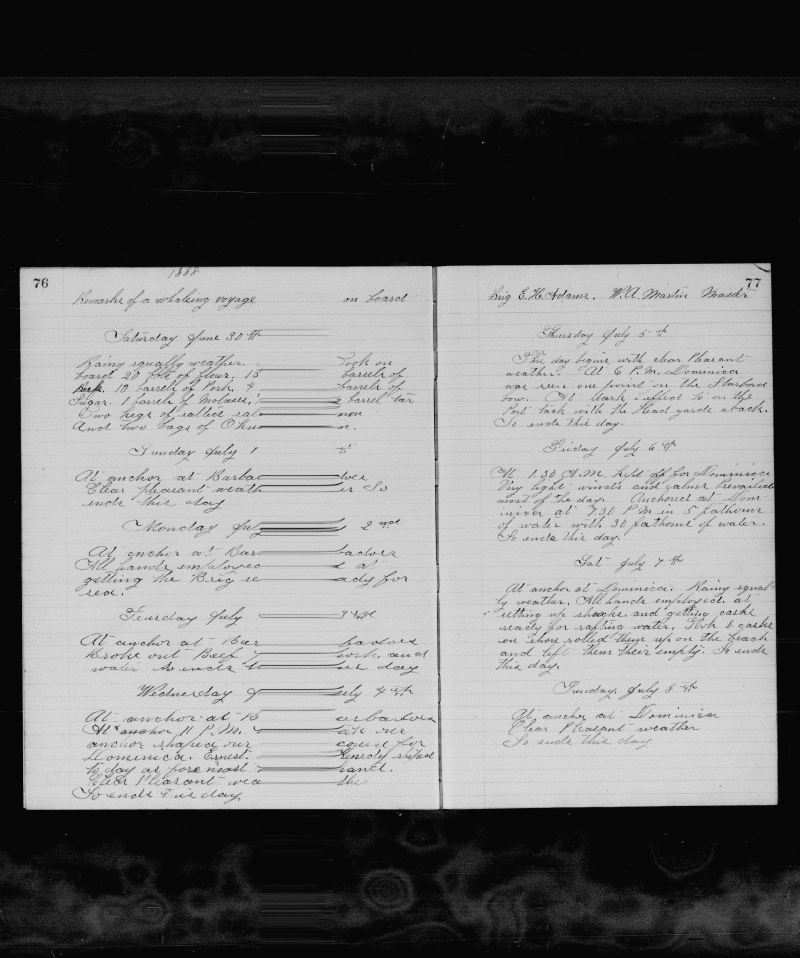 76
1888
Remarks of a whaling voyage on board
Saturday June 30 th
Rainy squally weather. Took on
board 20 of flour. 15 barrels of
10 barrels of Pork. 4 barrels of
Sugar. 1 barrel of Molases, barrel tar
Two kegs of salted non
And two bags of
Sunday July 1 st
At anchor at Barba does
Clear pleasant weath er So
ends this day
Monday July 2 nd
At anchor at Bar badoes
All hands employed at
getting the Brig re ady for
sea.
Teursday July 3 rd
At anchor at Bar badoes
Broke out Beef pork and
water So ends this day
Wednesday July 4 th
At anchor at B arbadoes
At anchor 11 P.M. took our
anchor shaped our course for
Dominica. Ernest shiped
to day as foremast hand.
Clear Pleasant wea the
So ends this day
77
Brig E. H. Adams. W. A. Martin Master
Thursday July 5 th
This day begins with clear Pleasant
weather. At 6 P.M. Dominica
was seen one point on the Starbord
bow. At dark luffed to on the
Port tack with the Head yards aback.
So ends this day.
Friday July 6 th
At 1.30 A.M. kept off for Dominica
Very light winds and calms prevailed
most of the day. Anchored at Dom-
inica at 7.30 P.M. in 5 fathoms
of water with 30 fathoms of water.
So ends this day.
Sat July 7 th
At anchor at Dominica. Rainy squal-
ly weather. All hands employed at
setting up shooks and getting casks
ready for rafting water. Took 8 casks
on shore rolled them up on the beach
and left them their empty. So ends
this day.
Sunday July 8 th
At anchor at Dominica
Clear Pleasant weather
So ends this day